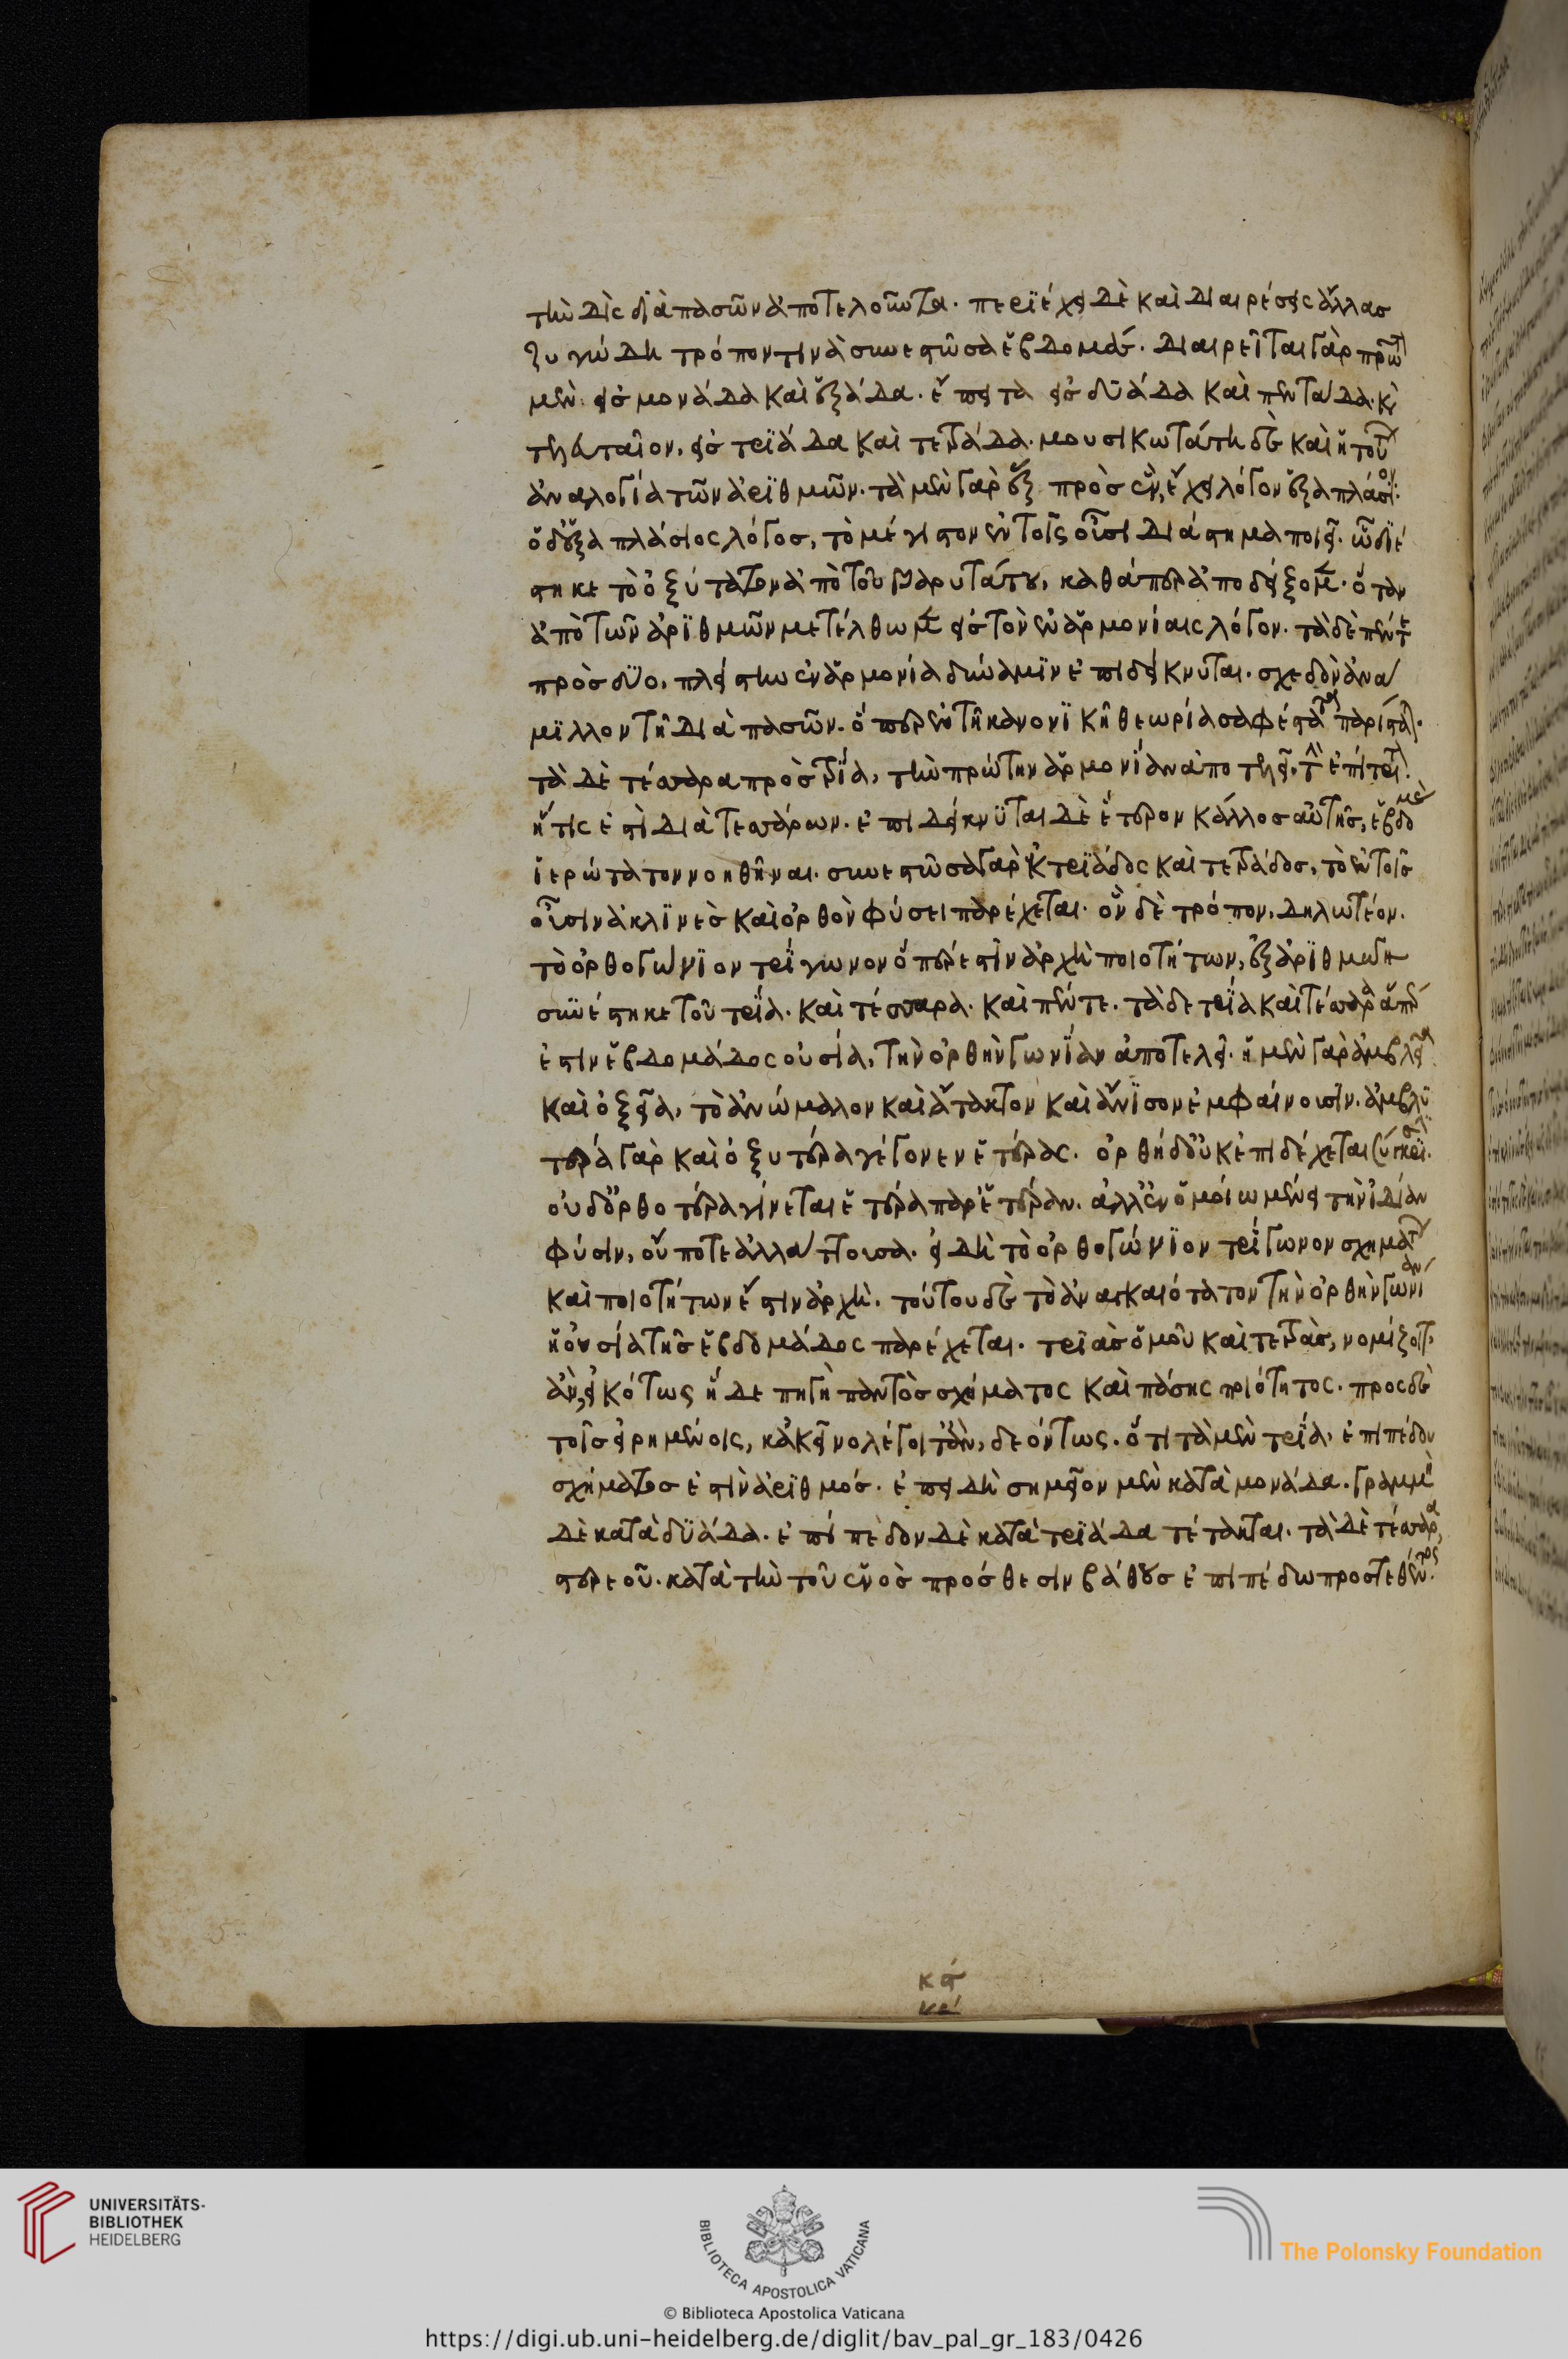 τὴν δὶς διὰ πασῶν ἀποτελοῦντα. περιέχει δὲ καὶ διαιρέσεις ἄλλας
ζυγώδη τρόπον τινὰ συνεστῶσα ἑβδομάς. διαιρεῖται γὰρ πρῶτ
μὲν εἰς μονάδα καὶ ἑξάδα. ἔπειτα εἰς δυάδα καὶ πεντάδα. κὶ
τελευταῖον, εἰς τριάδα καὶ τετράδα. μουσικωτάτη δὲ καὶ ἡ τούτ
ἀναλογία τῶν ἀριθμῶν. τὰ μὲν γὰρ ἓξ πρὸς ἓν, ἔχει λόγον ἑξαπλάσιον.
ὁ δ' ἑξαπλάσιος λόγος, τὸ μέγιστον ἐν τοῖς οὖσι διάστημα ποιεῖ. ὧ διέ
στηκε τὸ ὀξύτατον ἀπὸ τοῦ βαρυτάτου, καθάπερ ἀποδείξομ. ὅταν
ἀπὸ τῶν ἀριθμῶν μετέλθωμ εἰς τὸν ἐν ἁρμονίαις λόγον. τὰ δὲ πέντε
πρὸς δύο, πλείστην ἐν ἁρμονία δύναμιν ἐπιδείκνυται. σχεδὸν ἀνα
μιλλον τῆ διὰ πασῶν. ὅπερ ἐν τῆ κανονικῆ θεωρία σαφέστατα παρίστατ.
τὰ δὲ τέσσαρα πρὸς τρία, τὴν πρώτην ἁρμονίαν ἀποτελεῖ. τὴν ἐπίτριτ.
ἥτις ἐστὶ διὰ τεσσάρων. ἐπιδείκνυται δὲ ἕτερον κάλλος αὐτῆς, ἑβδομὰς
ἱερώτατον νοηθῆναι. συνεστῶσα γὰρ ἐκ τριάδος καὶ τετράδος, τὸ ἐν τοῖς
οὖσιν ἀκλινὲς καὶ ὀρθὸν φύσει παρέχεται. ὃν δὲ τρόπον, δηλωτέον.
τὸ ὀρθογώνιον τρίγωνον ὅπερ ἐστὶν ἀρχὴ ποιοτήτων, ἐξ ἀριθμῶν
συνέστηκε τοῦ τρία. καὶ τέσσαρα. καὶ πέντε. τὰ δὲ τρία καὶ τέσσαρα ἅπερ
ἐστὶν ἑβδομάδος οὐσία, τὴν ὀρθὴν γωνίαν ἀποτελεῖ. ἡ μὲν γὰρ ἀμβλεῖα
καὶ ὀξεῖα, τὸ ἀνώμαλον καὶ ἄτακτον καὶ ἄνισον ἐμφαίνουσιν. ἀμβλυ
τέρα γὰρ καὶ ὀξυτέρα γέγονεν ἑτέρας. ὀρθὴ δ' οὐκ ἐπιδέχεται σύγκρι.
οὐδ' ὀρθοτέρα γίνεται ἑτέρα παρ' ἑτέραν. ἀλλ' ἐν ὁμοίω μένει τὴν ἰδίαν
φύσιν, οὔποτε ἀλλάττουσα. εἰ δὴ τὸ ὀρθογώνιον τρίγωνον σχημάτ
καὶ ποιοτήτων ἐστιν ἀρχὴ. τούτου δὲ τὸ ἀναγκαιότατον τὴν ὀρθὴν γωνίαν
ἡ οὐσία τῆς ἑβδομάδος παρέχεται. τριὰς ὁμοῦ καὶ τετρὰς, νομίζοιτ
ἂν, εἰκότως ἥδε πηγὴ παντὸς σχήματος καὶ πάσης ποιότητος. προς δὲ
τοῖς εἰρημένοις, κἀκεῖνο λέγοιτ' ἂν, δεόντως. ὅτι τὰ μὲν τρία, ἐπιπέδου
σχήματος ἐστὶν ἀριθμός. ἐπειδὴ σημεῖον μὲν κατὰ μονάδα. γραμμὴ
δὲ κατὰ δυάδα. ἐπίπεδον δὲ κατὰ τριάδα τέτακται. τὰ δὲ τέσσαρα,
στερεοῦ. κατὰ τὴν τοῦ ἑνὸς πρόσθεσιν βάθους ἐπιπέδω προστεθέντος.
UNIVERSITÄTS-
BIBLIOTHEK
HEIDELBERG
BIBLIOTECA APOSTOLICA VATICANA
The Polonsky Foundation
© Biblioteca Apostolica Vaticana
https://digi.ub.uni-heidelberg.de/diglit/bav_pal_gr_183/0426